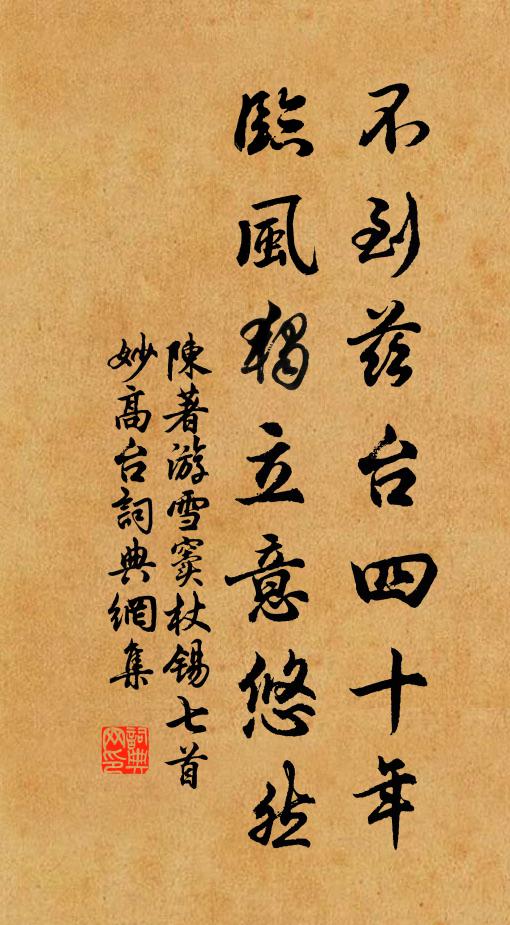 不到茲台四十年
臨風獨立意悠然
陳著游雪竇杖錫七首
妙高台詞典網集
詞典網印